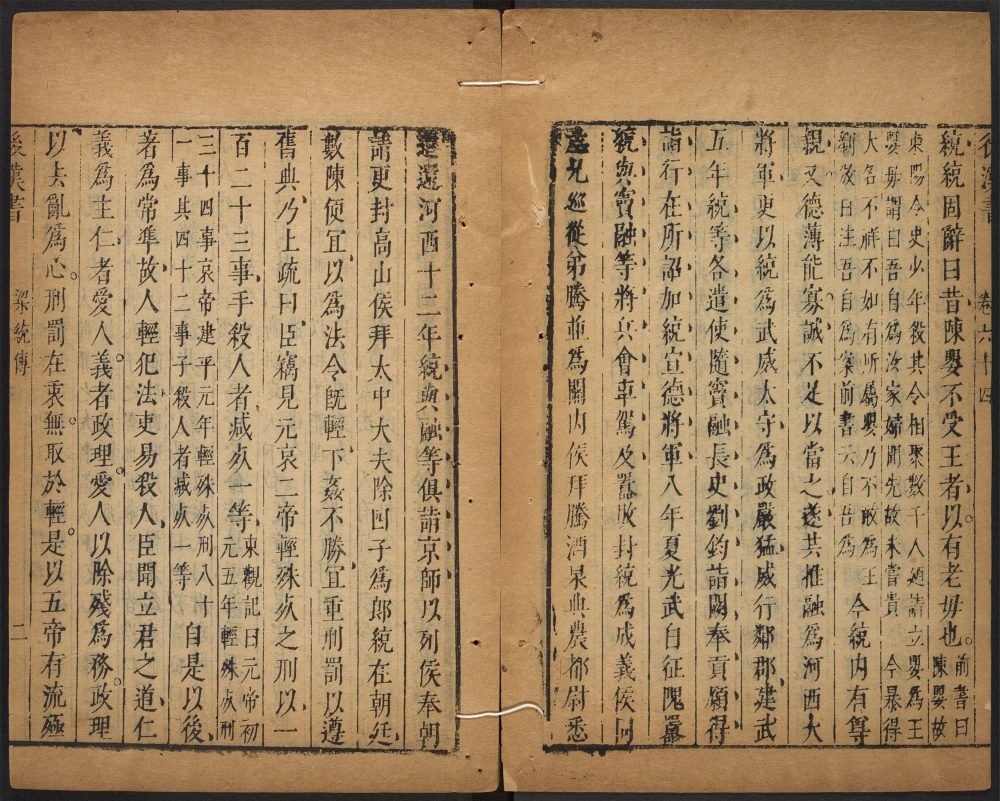 後漢書 卷六十四
統統固辭曰昔陳嬰不受王者以有老母也前書曰陳嬰故
東陽令史少年殺其令相聚數千人迺請立嬰為王
嬰母謂曰吾自為汝家婦聞先故未嘗貴今暴得
大名不祥不如有所屬嬰乃不敢為王
劉攽曰注吾自為案前書云自吾為今統內有尊
親又德薄能寡誠不足以當之遂共推融為河西大
將軍更以統為武威太守為政嚴猛威行鄰郡建武
五年統等各遣使隨竇融長史劉鈞詣闕奉貢願得
詣行在所詔加統宣德將軍八年夏光武自征隗囂
統與竇融等將兵會車駕及囂敗封統為成義侯同
產兄巡從弟騰並為關內侯拜騰酒泉典農都尉悉
遣還河西十二年統與融等俱詣京師以列侯奉朝
請更封高山侯拜太中大夫除四子為郎統在朝廷
數陳便宜以為法令既輕下姦不勝宜重刑罰以遵
舊典乃上疏曰臣竊見元哀二帝輕殊死之刑以一
百二十三事手殺人者減死一等東觀記曰元帝初元五年輕殊死刑
三十四事哀帝建平元年輕殊死刑八十
一事其四十二事手殺人者減死一等自是以後
著為常準故人輕犯法吏易殺人臣聞立君之道仁
義為主仁者愛人義者政理愛人以除殘為務政理
以去亂為心刑罰在衷無取於輕是以五帝有流殛
後漢書 梁統傳 二